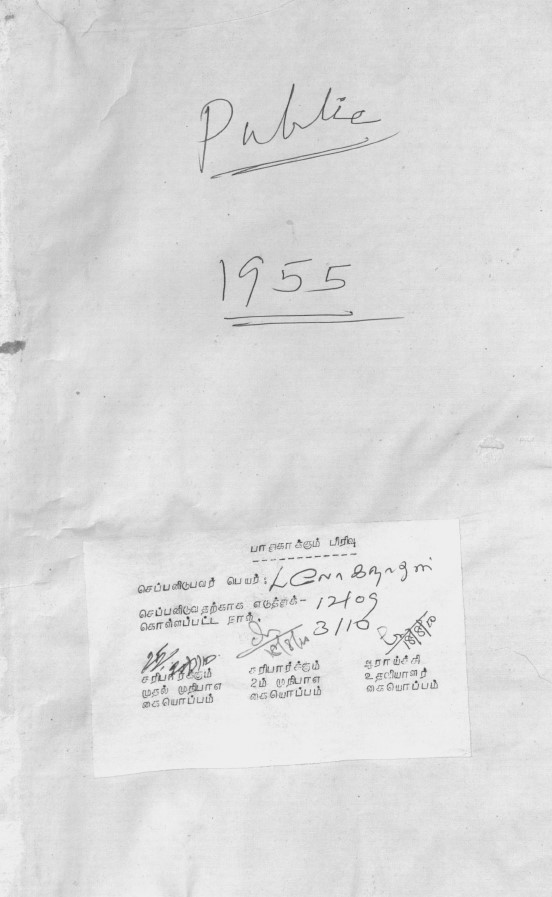 Public
1955
பாதுகாக்கும் பிரிவு
செப்பனிடுபவர் பெயர் :
செப்பனிடுவதற்காக எடுத்துக்- 12/09
கொள்ளப்பட்ட நாள். 3/10
சரிபார்க்கும் சரிபார்க்கும் ஆராய்ச்சி
முதல் முறிபாள 2ம் முறிபாள உதவியாளர்
கையொப்பம் கையொப்பம் கையொப்பம்